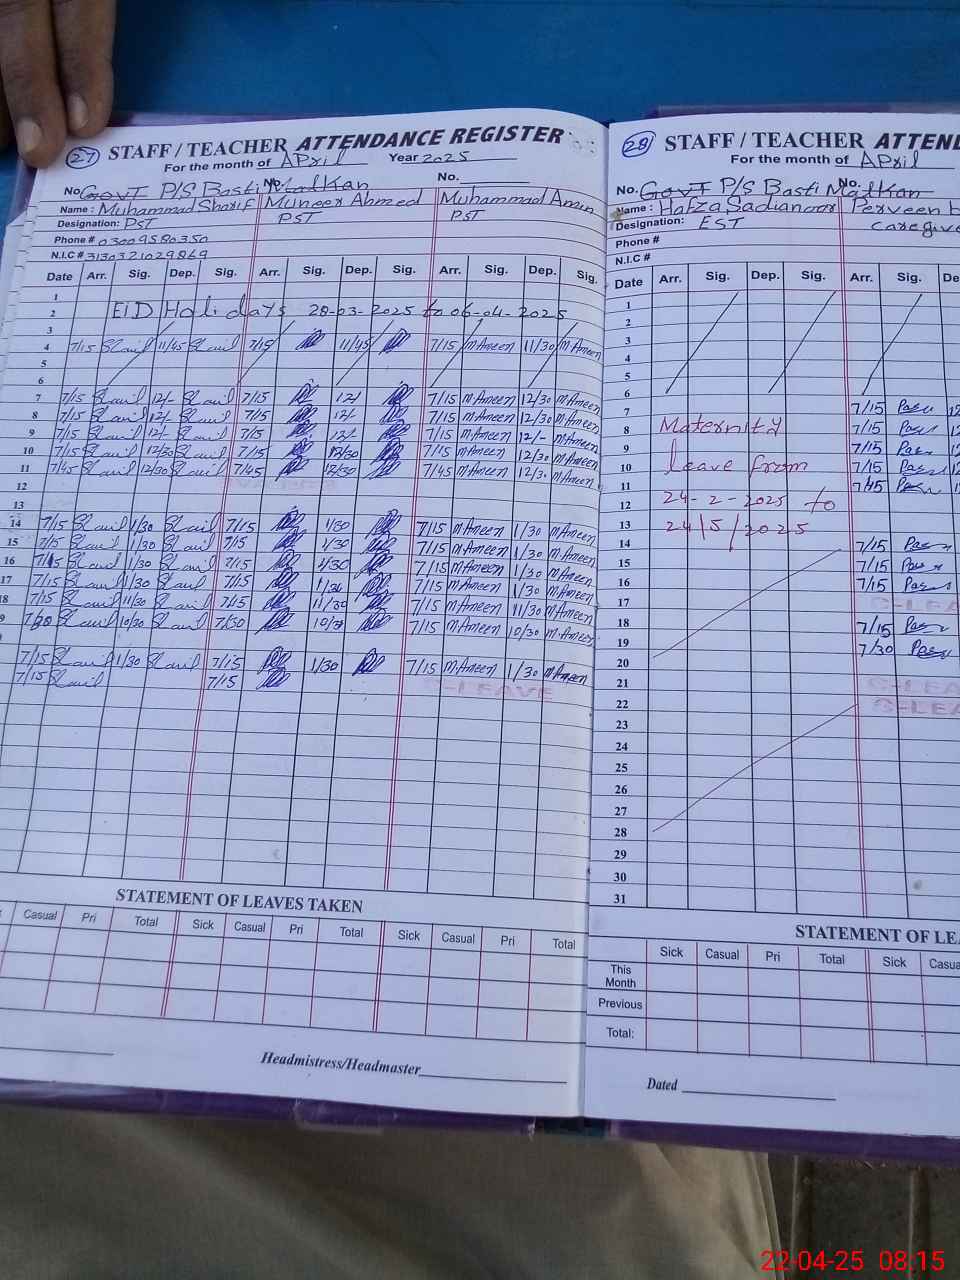 27 STAFF / TEACHER ATTENDANCE REGISTER
For the month of APril Year 2025
No. GovT P/S Basti Malkan No. No.
Name : Muhammad Sharif Muneer Ahmed Muhammad Amin
Designation: PST PST PST
Phone # 03009580350
N.I.C # 3130321029869
Date Arr. Sig. Dep. Sig. Arr. Sig. Dep. Sig. Arr. Sig. Dep. Sig.
1
2 EID Holidays 28-03-2025 to 06-04-2025
3
4 7/15 11/45 7/15 11/45 7/15 M Ameen 11/30 M Ameen
5
6
7 7/15 12/- 7/15 12/- 7/15 M Ameen 12/30 M Ameen
8 7/15 12/- 7/15 12/- 7/15 M Ameen 12/30 M Ameen
9 7/15 12/- 7/15 12/- 7/15 M Ameen 12/- M Ameen
10 7/15 12/30 7/15 12/30 7/15 M Ameen 12/30 M Ameen
11 7/45 12/30 7/45 12/30 7/45 M Ameen 12/30 M Ameen
12
13
14 7/15 1/30 7/15 1/30 7/15 M Ameen 1/30 M Ameen
15 7/15 1/30 7/15 1/30 7/15 M Ameen 1/30 M Ameen
16 7/15 1/30 7/15 1/30 7/15 M Ameen 1/30 M Ameen
17 7/15 1/30 7/15 1/30 7/15 M Ameen 1/30 M Ameen
18 7/15 11/30 7/15 11/30 7/15 M Ameen 11/30 M Ameen
9 7/30 10/30 7/30 10/30 7/15 M Ameen 10/30 M Ameen
7/15 1/30 7/15 1/30 7/15 M Ameen 1/30 M Ameen
7/15 7/15 C-LEAVE
STATEMENT OF LEAVES TAKEN
Casual Pri Total Sick Casual Pri Total Sick Casual Pri Total
Headmistress/Headmaster
28 STAFF / TEACHER ATTEN
For the month of APril
No. GovT P/S Basti Malkan No.
Name : Hafza Sadianoor Perveen
Designation: EST caregive
Phone #
N.I.C #
Date Arr. Sig. Dep. Sig. Arr. Sig. De
1
2
3
4
5
6
7 7/15
8 Maternity 7/15
9 7/15
10 leave from 7/15
11 7/45
12 24-2-2025 to
13 24/5/2025
14 7/15
15 7/15
16 7/15
17 C-LEA
18 7/15
19 7/30
20
21 C-LEA
22 C-LEA
23
24
25
26
27
28
29
30
31
STATEMENT OF LEA
Sick Casual Pri Total Sick Casua
This Month
Previous
Total:
Dated
22-04-25 08:15